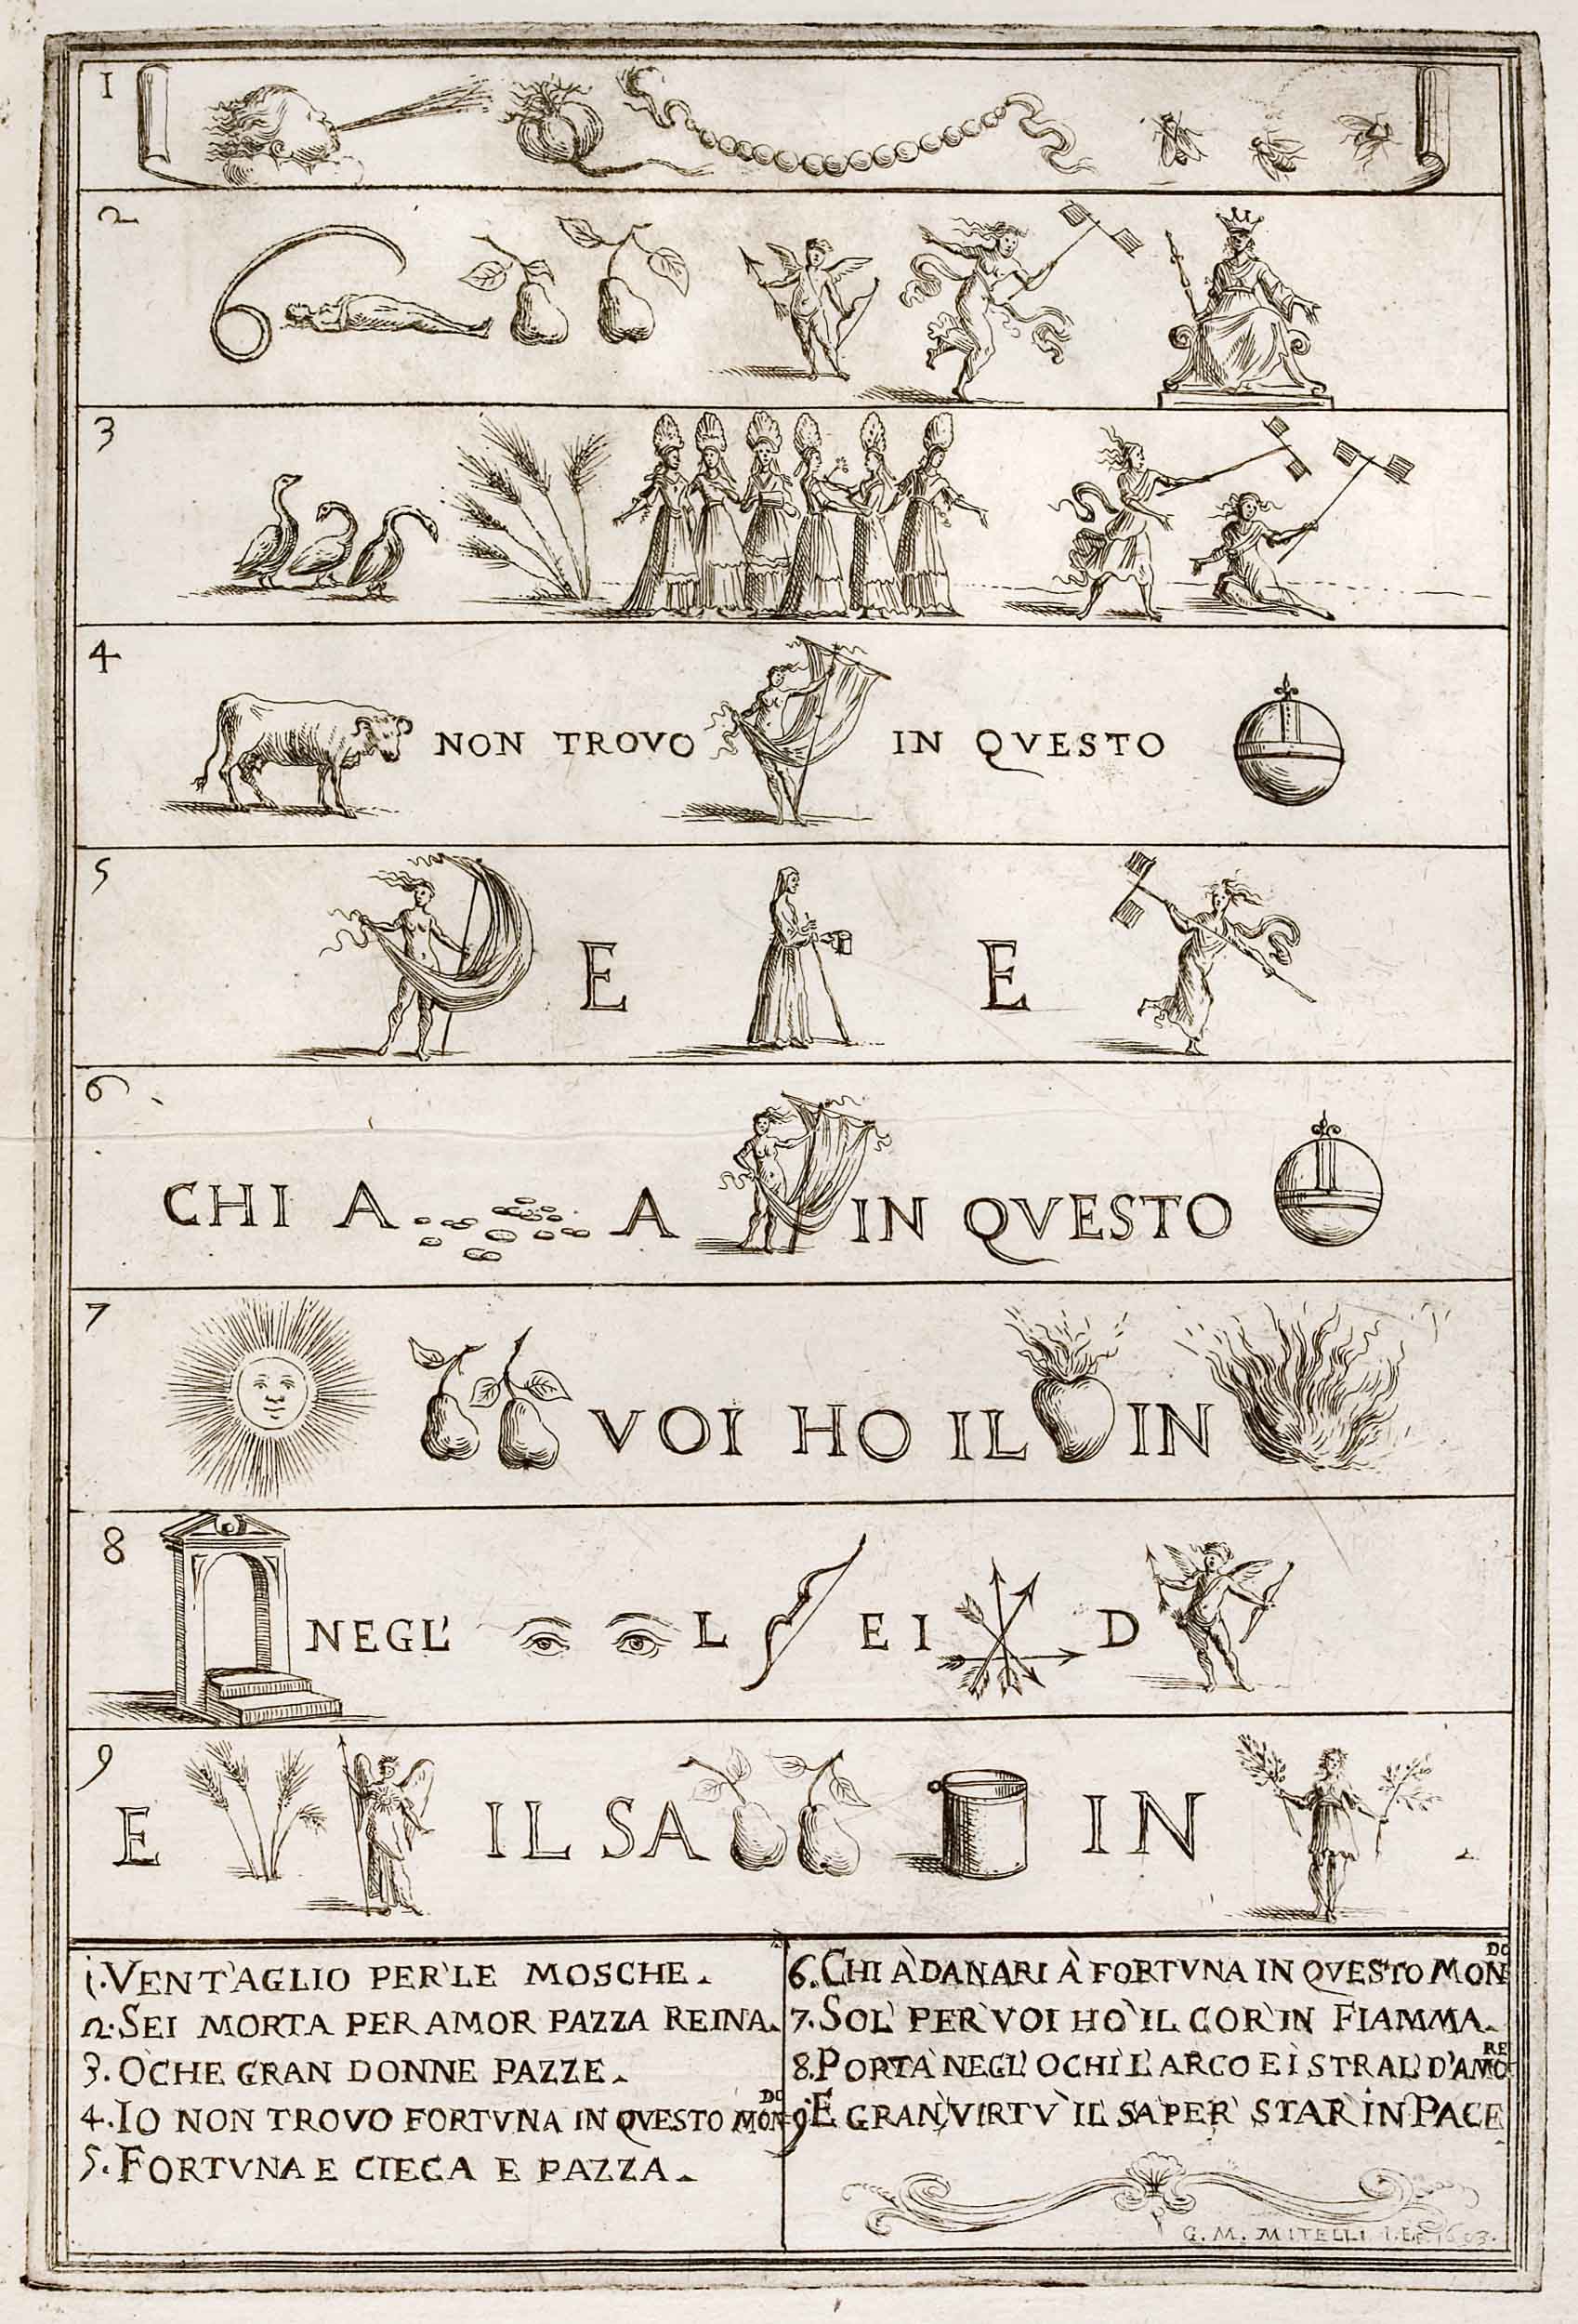 1
2
6
3
4 NON TROVO IN QVESTO
5 E E
6 CHI A A IN QVESTO
7 VOI HO IL IN
8 NEGL' L E I D
9 E IL SA IN
1. VENT'AGLIO PER'LE MOSCHE.
2. SEI MORTA PER AMOR PAZZA REINA.
3. OCHE GRAN DONNE PAZZE.
4. IO NON TROVO FORTVNA IN QVESTO MONDO
5. FORTVNA E CIECA E PAZZA.
6. CHI À DANARI À FORTVNA IN QVESTO MONDO
7. SOL' PER'VOI HO'IL COR'IN FIAMMA.
8. PORTA NEGL' OCHI L'ARCO E I STRAL' D'AMORE
9. E GRAN VIRTV' IL SAPER' STAR IN PACE
G. M. MITELLI I. E F.